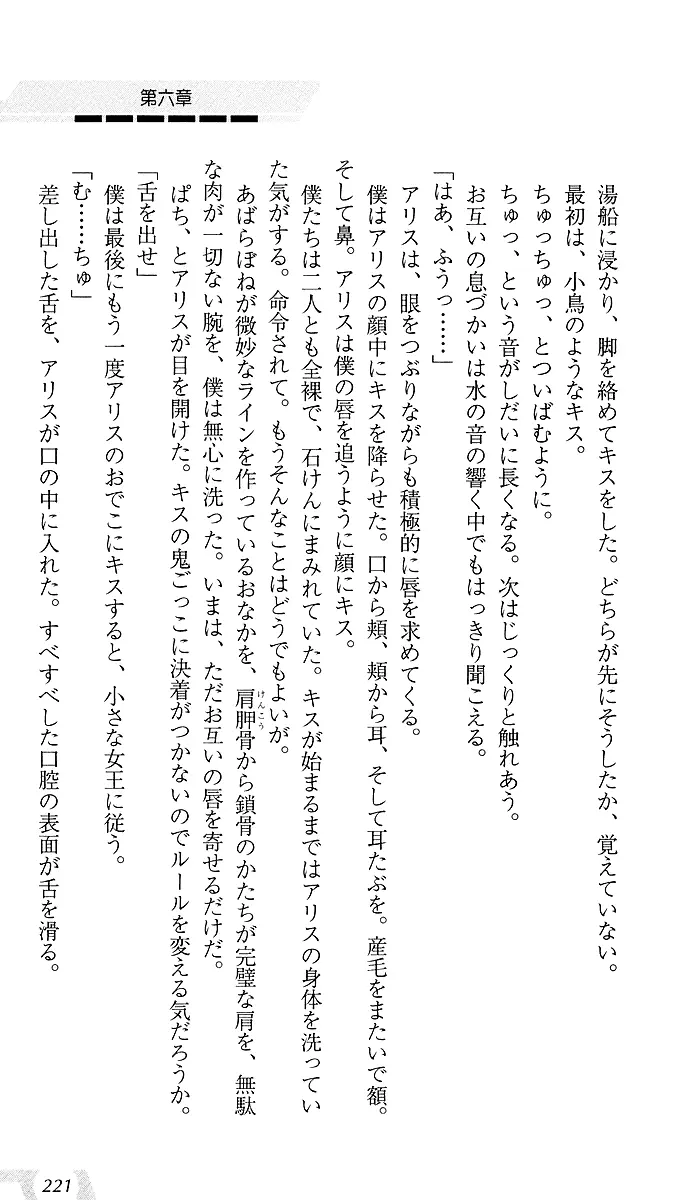 第六章
湯船に浸かり、脚を絡めてキスをした。どちらが先にそうしたか、覚えていない。
最初は、小鳥のようなキス。
ちゅっちゅっ、とついばむように。
ちゅっ、という音がしだいに長くなる。次はじっくりと触れあう。
お互いの息づかいは水の音の響く中でもはっきり聞こえる。
「はあ、ふうっ……」
アリスは、眼をつぶりながらも積極的に唇を求めてくる。
僕はアリスの顔中にキスを降らせた。口から頬、頬から耳、そして耳たぶを。産毛をまたいで額。
そして鼻。アリスは僕の唇を追うように顔にキス。
僕たちは二人とも全裸で、石けんにまみれていた。キスが始まるまではアリスの身体を洗ってい
た気がする。命令されて。もうそんなことはどうでもよいが。
あばらぼねが微妙なラインを作っているおなかを、肩胛骨から鎖骨のかたちが完璧な肩を、無駄
けんこう
な肉が一切ない腕を、僕は無心に洗った。いまは、ただお互いの唇を寄せるだけだ。
ぱち、とアリスが目を開けた。キスの鬼ごっこに決着がつかないのでルールを変える気だろうか。
「舌を出せ」
僕は最後にもう一度アリスのおでこにキスすると、小さな女王に従う。
「む……ちゅ」
差し出した舌を、アリスが口の中に入れた。すべすべした口腔の表面が舌を滑る。
221